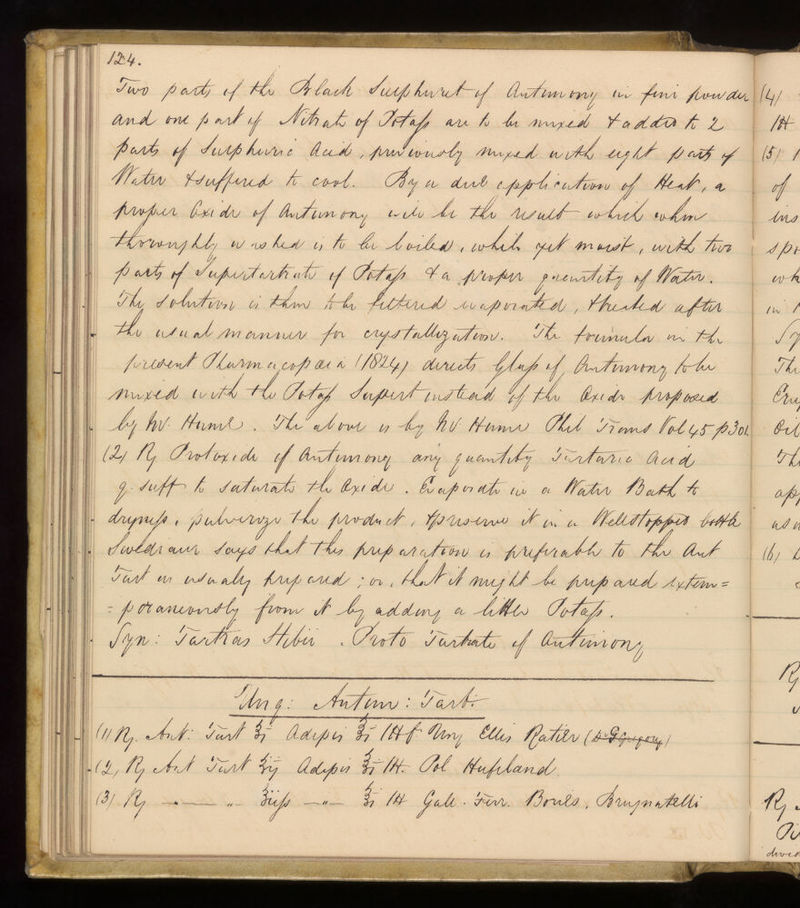 124.
Two parts of the Black Sulphuret of Antimony in fine powder
and one part of Nitrate of Potass are to be mixed & added to 2
parts of Sulphuric Acid, previously mixed with eight parts of
Water & suffered to cool. By a due application of Heat, a
proper Oxide of Antimony will be the result which when
thoroughly washed is to be boiled, while yet moist, with two
parts of Supertartrate of Potass & a proper quantity of Water.
The solution is then to be filtered evaporated, & treated after
the usual manner for crystallization. The formula in the
present Pharmacopœia (1824) directs Glass of Antimony to be
mixed with the Potass Supert instead of the Oxide proposed
by Mr. Hume. The above is by Mr Hume Phil Trans Vol 45 p301.
(2) ℞ Protoxide of Antimony any quantity Tartaric Acid
q. suff to saturate the Oxide. Evaporate in a Water Bath to
dryness, pulverize the product, & preserve it in a Wellstopped bottle
Swediaur says that this preparation is preferable to the Ant
Tart as usualy prepared; or, that it might be prepared extem=
=poraneously from it by adding a little Potass.
Syn: Tartras Stibii. Proto Tartrate of Antimony
Ung: Antim: Tart.
(1) ℞. Ant: Tart ʒi Adipis ℥i Ht f Ung Ellis Ratier (Dr Gregory)
(2) ℞ Ant Tart ʒij Adipis ℥i Ht. Pol Hufeland
(3) ℞ — „ ʒiiss — „ ℥i Ht Gall. Ferr. Bories, Brugnatelli
(4)
Ht
(5)
of
(6)
℞
℞